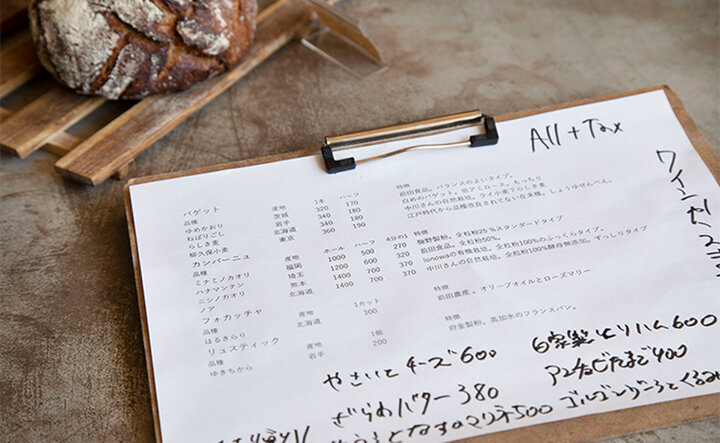 All + Tax
バゲット
品種 産地 1本 ハーフ 特徴
ゆめかおり 茨城 320 170 前田食品。バランスのよいタイプ。
ねばりごし 岩手 340 180 白めのバゲット。低アミロース、もっちり
らしき麦 北海道 340 180 中川さんの自然栽培。ライ小麦?らしき麦
柳久保小麦 東京 360 190 江戸時代から品種改良されてない在来種。しょうゆせんべえ。
カンパーニュ
品種 産地 ホール ハーフ 4分の1 特徴
ミナミノカオリ 福岡 1000 500 270 柳野製粉。全粒粉25%スタンダードタイプ
ハナマンテン 埼玉 1200 600 320 前田食品。全粒粉50%。
ニシノカオリ 熊本 1400 700 370 Ionowaの有機栽培。全粒粉100%のふっくらタイプ。
ノア 北海道 1400 700 370 中川さんの自然栽培。全粒粉100%酵母無添加。ずっしりタイプ
フォカッチャ
品種 産地 1カット 特徴
はるきらり 北海道 300 前田農産。オリーブオイルとローズマリー
リュスティック
品種 産地 1個 特徴
ゆきちから 岩手 200 府金製粉。高加水のフランスパン。
やさいとチーズ600
自家製とりハム600
ざらめバター380
アンチョビたまご400
となすのマリネ500
ゴルゴンゾーラとくるみ